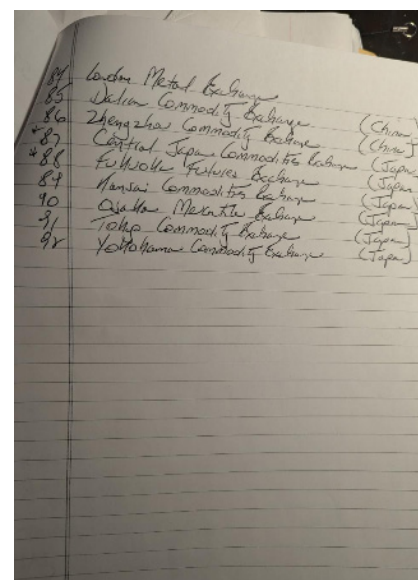 84 London Metal Exchange
85 Dalian Commodity Exchange (China)
86 Zhengzhou Commodity Exchange (China)
*87 Central Japan Commodities Exchange (Japan
*88 Fukuoka Futures Exchange (Japan
89 Kansai Commodities Exchange (Japan)
90 Osaka Mercantile Exchange (Japan)
91 Tokyo Commodity Exchange (Japan)
92 Yokohama Commodity Exchange (Japan)